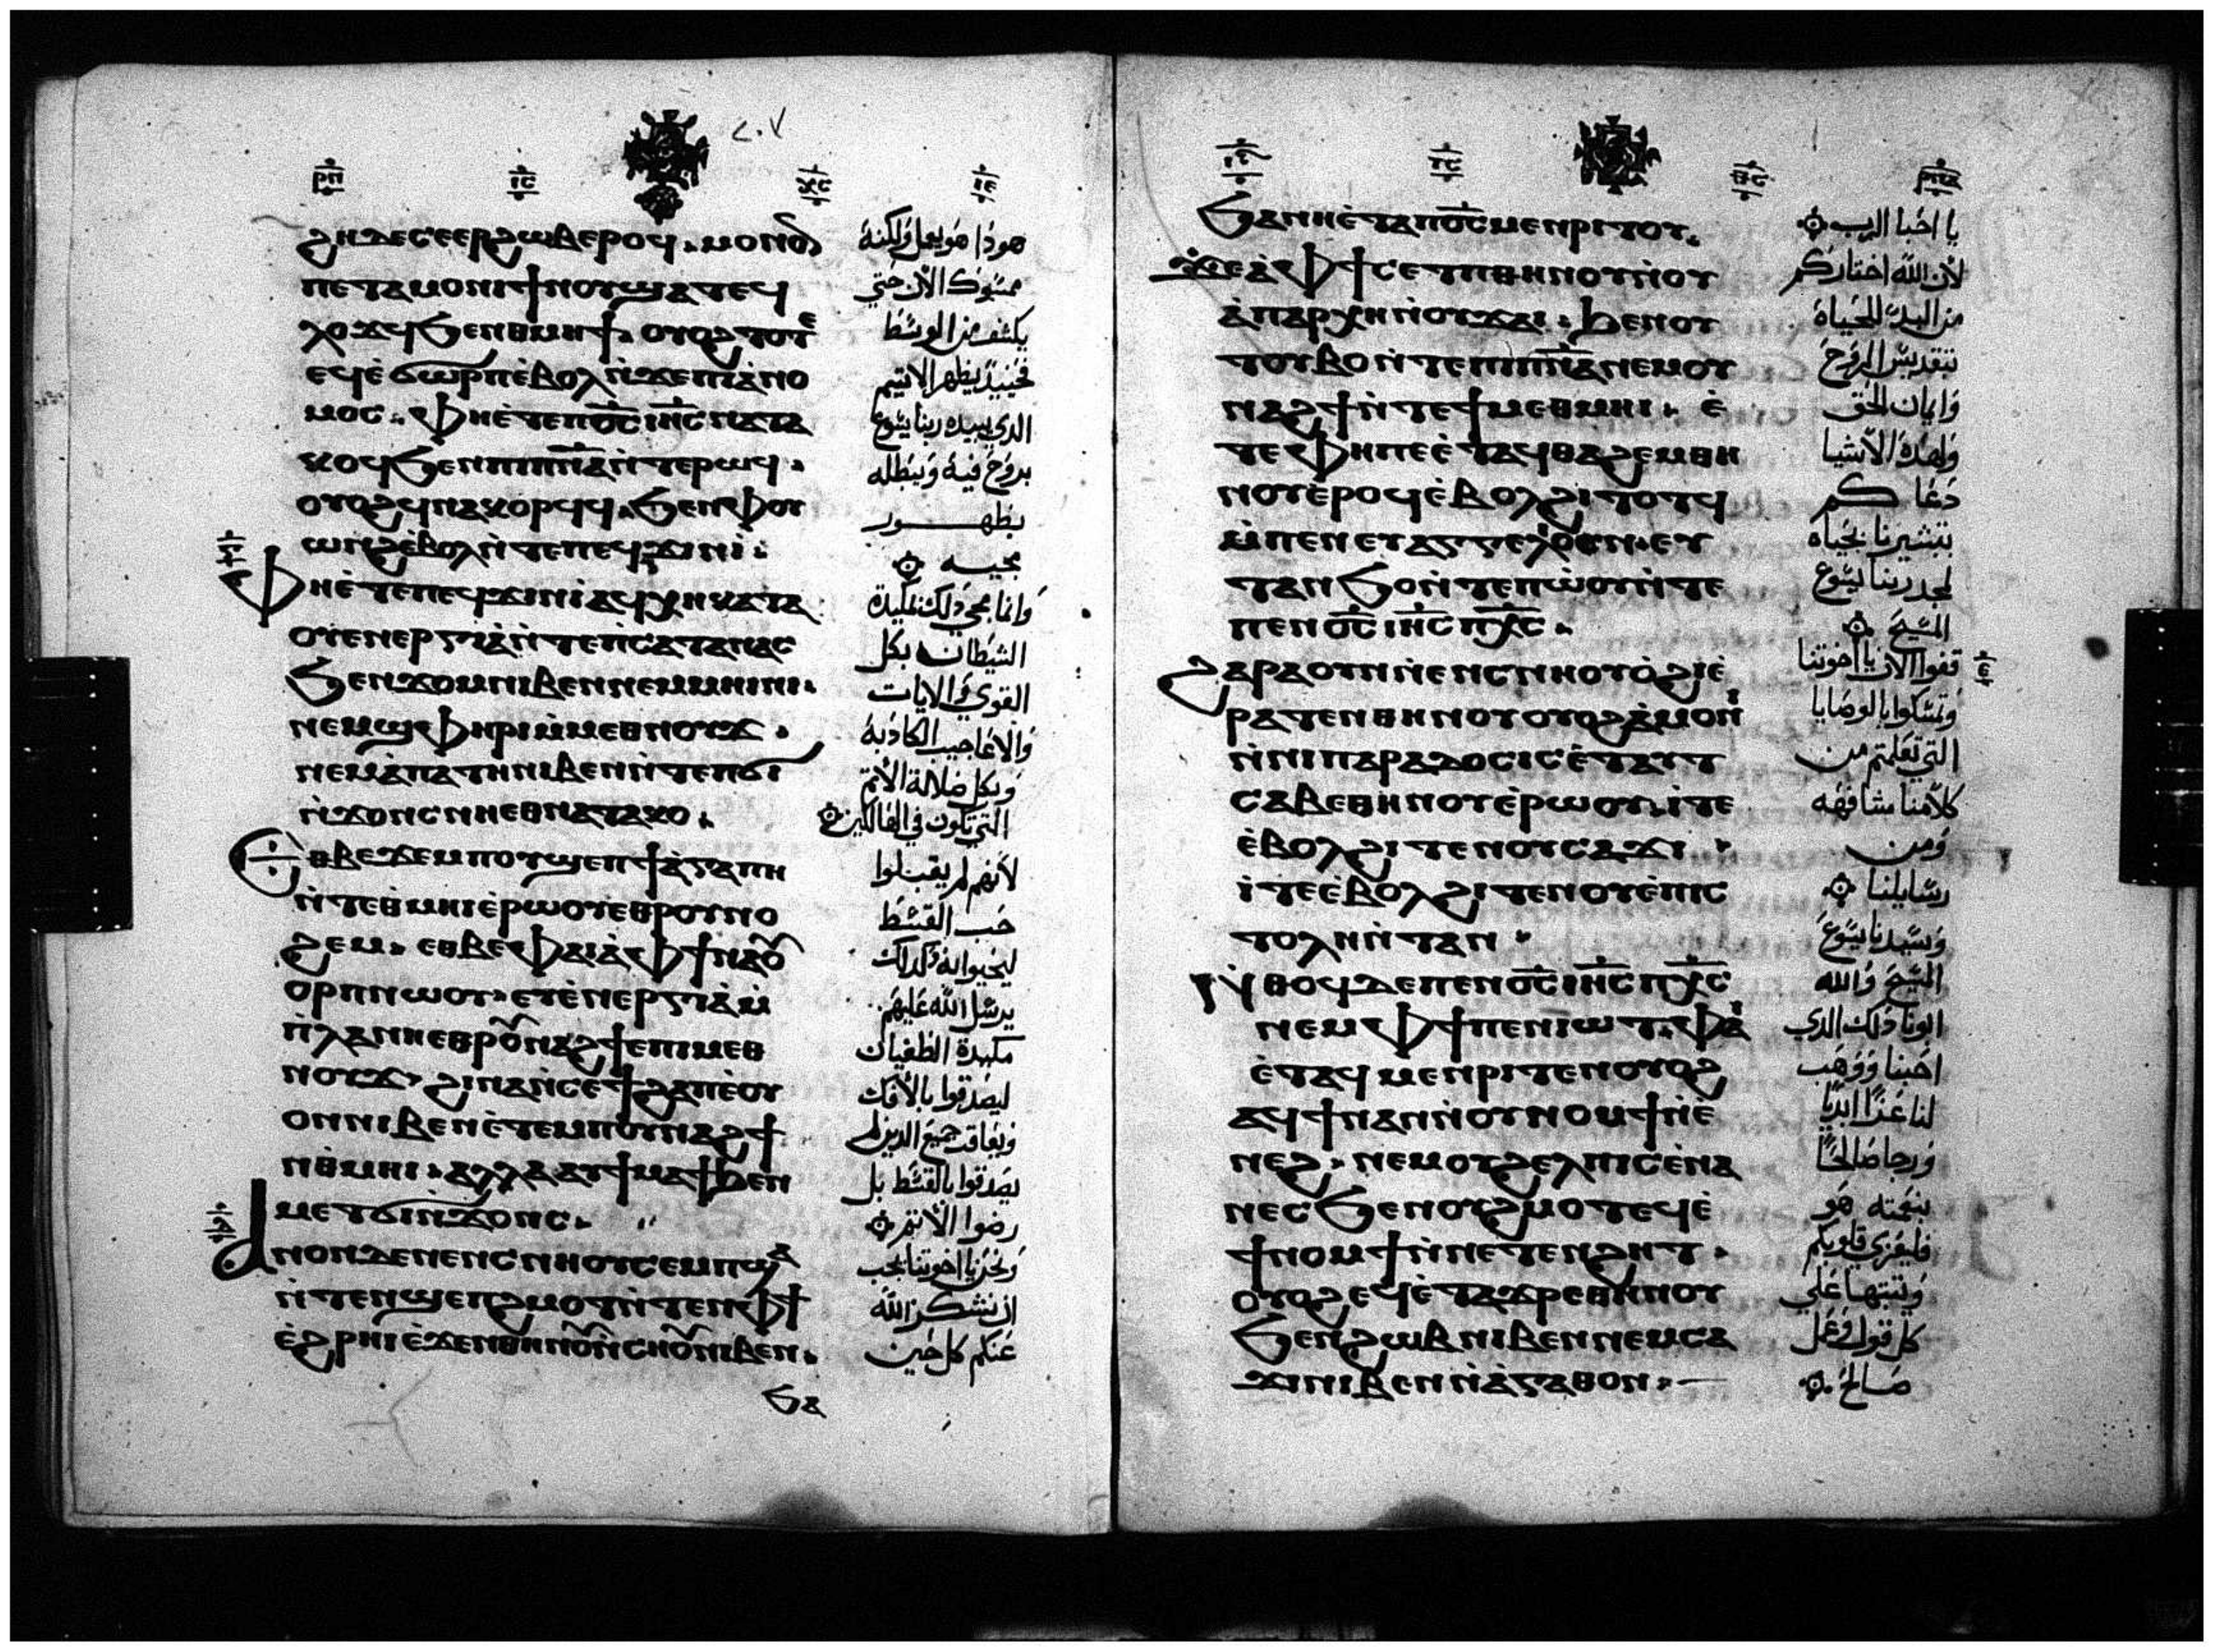 ⲣⲡ ⲓⲥ ⲭⲥ ⲓⲉ
ϩⲏⲇⲉⲥⲉⲉⲣϩⲱⲃⲉⲣⲟϥ. ⲙⲟⲛⲟⲛ
ⲡⲉⲧⲁⲙⲟⲛⲓϯⲛⲟⲩϣⲁⲧⲉϥ
ⲗⲟϫϥϧⲉⲛⲑⲙⲏϯ. ⲟⲩⲟϩⲧⲟⲧⲉ
ⲉϥⲉ̀ϭⲱⲣⲡⲉ̀ⲃⲟⲗⲛ̀ϫⲉⲡⲓⲁ̀ⲛⲟ
ⲙⲟⲥ. ⲫⲏⲉ̀ⲧⲉⲡⲟ̅ⲥ̅ⲓⲏ̅ⲥ̅ⲛⲁⲧⲁ
ⲕⲟϥϧⲉⲛⲡⲓⲡⲛ̅ⲁ̅ⲛ̀ⲧⲉⲣⲱϥ.
ⲟⲩⲟϩϥⲛⲁⲕⲟⲣϥϥ. ϧⲉⲛⲫⲟⲩ
ⲱⲛϩⲉ̀ⲃⲟⲗⲛ̀ⲧⲉⲡⲉϥϫⲓⲛⲓ̀:
ⲫⲏⲉ̀ⲧⲉⲡⲉϥϫⲓⲛⲓ̀ⲁϥⲭⲏⲕⲁⲧⲁ
ⲟⲩⲉⲛⲉⲣⲅⲓⲁ̀ⲛ̀ⲧⲉⲡ̀ⲥⲁⲧⲁⲛⲁⲥ
ϧⲉⲛϫⲟⲙⲛⲓⲃⲉⲛⲛⲉⲙⲙⲏⲓⲛⲓ.
ⲛⲉⲙϣⲫⲏⲣⲓⲙ̀ⲙⲉⲑⲛⲟⲩϫ.
ⲛⲉⲙⲁ̀ⲡⲁⲧⲏⲛⲓⲃⲉⲛⲛ̀ⲧⲉⲡϭⲓ
ⲛ̀ϫⲟⲛⲥⲛⲛⲉⲑⲛⲁⲧⲁⲕⲟ.
ⲉⲑⲃⲉϫⲉⲙⲡⲟⲩϣⲉⲡϯⲁ̀ⲅⲁⲡⲏ
ⲛ̀ⲧⲉⲑⲙⲏⲓⲉ̀ⲣⲱⲟⲩⲉⲑⲣⲟⲩⲛⲟ
ϩⲉⲙ. ⲉⲑⲃⲉⲫⲁⲓⲁ̀ⲫϯⲛⲁⲟⲩ
ⲟⲣⲡⲛⲱⲟⲩ. ⲉⲩⲉ̀ⲛⲉⲣⲅⲓⲁ̀ⲙ̀
ⲡ̀ⲗⲁⲛⲏⲉⲑⲣⲟⲩⲛⲁϩϯⲉⲡⲓⲙⲉⲑ
ⲛⲟⲩϫ. ϩⲓⲛⲁⲛ̀ⲥⲉϯϩⲁⲡⲉ̀ⲟⲩ
ⲟⲛⲛⲓⲃⲉⲛⲉ̀ⲧⲉⲙⲡⲟⲩⲛⲁϩϯ
ⲛⲑⲙⲏⲓ. ⲁⲗⲗⲁⲁⲩϯⲙⲁϯϧⲉⲛ
ⲙⲉⲧϭⲓⲛ̀ϫⲟⲛⲥ.
ⲁⲛⲟⲛⲇⲉⲛⲉⲛⲥⲛⲏⲟⲩⲥⲉⲙⲡϣⲁ
ⲛ̀ⲧⲉⲛϣⲉⲡϩⲙⲟⲧⲛ̀ⲧⲉⲛⲫϯ
ⲉ̀ϩⲣⲏⲓⲉ̀ϫⲉⲛⲑⲏⲛⲟⲩⲛ̀ⲥⲏⲟⲩⲛⲓⲃⲉⲛ.
ϧⲁ
هوذا هو يعمل ولكنه
ممسوك الان حتي
يكشف من الوسط
فحينيذ يظهر الاتيم
الدي يبيده ربنا يسوع
بروح فيه ويبطله
بظهور
مجيه
وانما مجي دلك لمكيدة
الشيطان بكل
القوي والايات
والاعاجيب الكادبة
وبكل ضلالة الاتم
التي تكون في الهالكين
لانهم لم يقبلوا
حب القسط
ليحيوا به ولدلك
يرسل الله عليهم
مكيدة الطغيان
ليصدقوا بالافك
ويعاقب جميع الدين لم
يصدقوا بالقسط بل
رضوا الاتم
ونحن يا اخوتنا يجب
ان نشكر الله
عنكم كل حين
ⲓⲥ ⲣⲡⲁ
ϧⲁⲛⲏⲉ̀ⲧⲁⲡⲟ̅ⲥ̅ⲙⲉⲛⲣⲓⲧⲟⲩ.
ϫⲉⲁ̀ⲫϯⲥⲉⲧⲡⲑⲏⲛⲟⲩⲛ̀ⲟⲩ
ⲁ̀ⲡⲁⲣⲭⲏⲛ̀ⲟⲩϫⲁⲓ. ϧⲉⲛⲟⲩ
ⲧⲟⲩⲃⲟⲛ̀ⲧⲉⲡⲓⲡⲛ̅ⲁ̅ⲛⲉⲙⲟⲩ
ⲛⲁϩϯⲛ̀ⲧⲉϯⲙⲉⲑⲙⲏⲓ. ⲉ̀
ⲧⲉⲫⲏⲡⲉⲉ̀ⲧⲁϥⲑⲁϩⲉⲙⲑⲏ
ⲛⲟⲩⲉ̀ⲣⲟϥⲉ̀ⲃⲟⲗϩⲓⲧⲟⲧϥ
ⲙ̀ⲡⲉⲛⲉⲩⲁⲅⲅⲉⲗⲓⲟⲛ. ⲉⲩ
ⲧⲁⲛϧⲟⲛ̀ⲧⲉⲡⲱ̀ⲟⲩⲛ̀ⲧⲉ
ⲡⲉⲛⲟ̅ⲥ̅ⲓⲏ̅ⲥ̅ⲡⲭ̅ⲥ̅.
ϩⲁⲣⲁⲟⲩⲛⲛⲉⲛⲥⲛⲏⲟⲩⲟ̀ϩⲓⲉ̀
ⲣⲁⲧⲉⲛⲑⲏⲛⲟⲩⲟⲩⲟϩⲁ̀ⲙⲟⲛⲓ
ⲛ̀ⲛⲓⲡⲁⲣⲁⲇⲟⲥⲓⲥⲉ̀ⲧⲁⲩⲧ
ⲥⲁⲃⲉⲑⲏⲛⲟⲩⲉ̀ⲣⲱⲟⲩ. ⲓ̀ⲧⲉ
ⲉ̀ⲃⲟⲗϩⲓⲧⲉⲛⲟⲩⲥⲁϫⲓ.
ⲓ̀ⲧⲉⲉ̀ⲃⲟⲗϩⲓⲧⲉⲛⲟⲩⲉ̀ⲡⲓⲥ
ⲧⲟⲗⲏⲛ̀ⲧⲁⲛ.
ⲛ̀ⲑⲟϥⲇⲉⲡⲉⲛⲟ̅ⲥ̅ⲓⲏ̅ⲥ̅ⲡⲭ̅ⲥ̅
ⲛⲉⲙⲫϯⲡⲉⲛⲓⲱⲧ. ⲫⲁⲓ
ⲉ̀ⲧⲁϥⲙⲉⲛⲣⲓⲧⲉⲛⲟⲩⲟϩ
ⲁϥϯⲛⲁⲛⲛ̀ⲟⲩⲛⲟⲙϯⲛ̀ⲉ̀
ⲛⲉϩ. ⲛⲉⲙⲟⲩϩⲉⲗⲡⲓⲥⲉ̀ⲛⲁ
ⲛⲉⲥϧⲉⲛⲟⲩϩⲙⲟⲧⲉϥⲉ̀
ϯⲛⲟⲙϯⲛ̀ⲛⲉⲧⲉⲛϩⲏⲧ.
ⲟⲩⲟϩⲉϥⲉ̀ⲧⲁϫⲣⲉⲑⲏⲛⲟⲩ
ϧⲉⲛϩⲱⲃⲛⲓⲃⲉⲛⲛⲉⲙⲥⲁ
ϫⲓⲛⲓⲃⲉⲛⲛ̀ⲁ̀ⲅⲁⲑⲟⲛ.
يا احبا الرب
لان الله اختاركم
من البدى للحياة
بتقديس الروح
وايمان الحق
ولهذه الاشيا
دعاكم
بتبشيرنا بحياه
لمجد ربنا يسوع
المسيح
قفوا الان يا اخوتنا
وتمسكوا بالوصايا
التي تعلمتم من
كلامنا مشافهه
ومن
رسايلنا
وسيدنا يسوع
المسيح والله
ابونا دلك الدي
احبنا ووهب
لنا عزا ابديا
ورجا صالحا
بنعمته هو
فليعزي قلوبكم
ويثبتها علي
كل قول وعمل
صالح